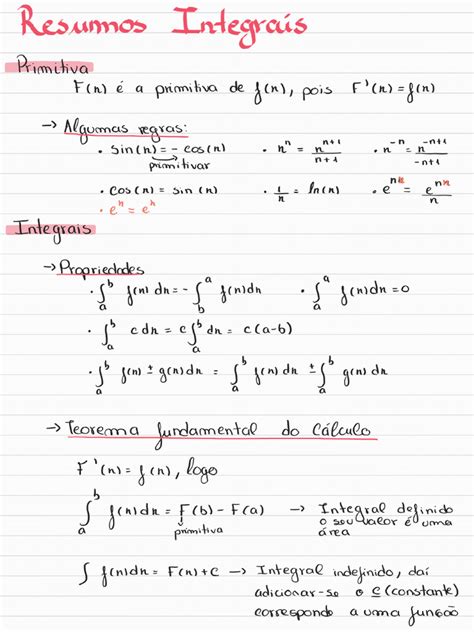 Resumos Integrais
Primitiva
F(x) é a primitiva de f(x), pois F'(x) = f(x)
→ Algumas regras:
• sin(x) = - cos(x) • xⁿ = xⁿ⁺¹/n+1 • x⁻ⁿ = x⁻ⁿ⁺¹/-n+1
primitivar
• cos(x) = sin(x) • 1/x = ln(x) • eⁿˣ = eⁿˣ/n
• eˣ = eˣ
Integrais
→ Propriedades
• ∫ₐᵇ f(x) dx = - ∫_b^a f(x) dx • ∫ₐᵃ f(x) dx = 0
• ∫ₐᵇ c dx = c ∫ₐᵇ dx = c(a-b)
• ∫ₐᵇ f(x) ± g(x) dx = ∫ₐᵇ f(x) dx ± ∫ₐᵇ g(x) dx
→ Teorema fundamental do cálculo
F'(x) = f(x), logo
∫ₐᵇ f(x) dx = F(b) - F(a) → Integral definido
o seu valor é uma
primitiva
área
∫ f(x) dx = F(x) + C → Integral indefinido, daí
adicionar-se o C (constante)
corresponde a uma função